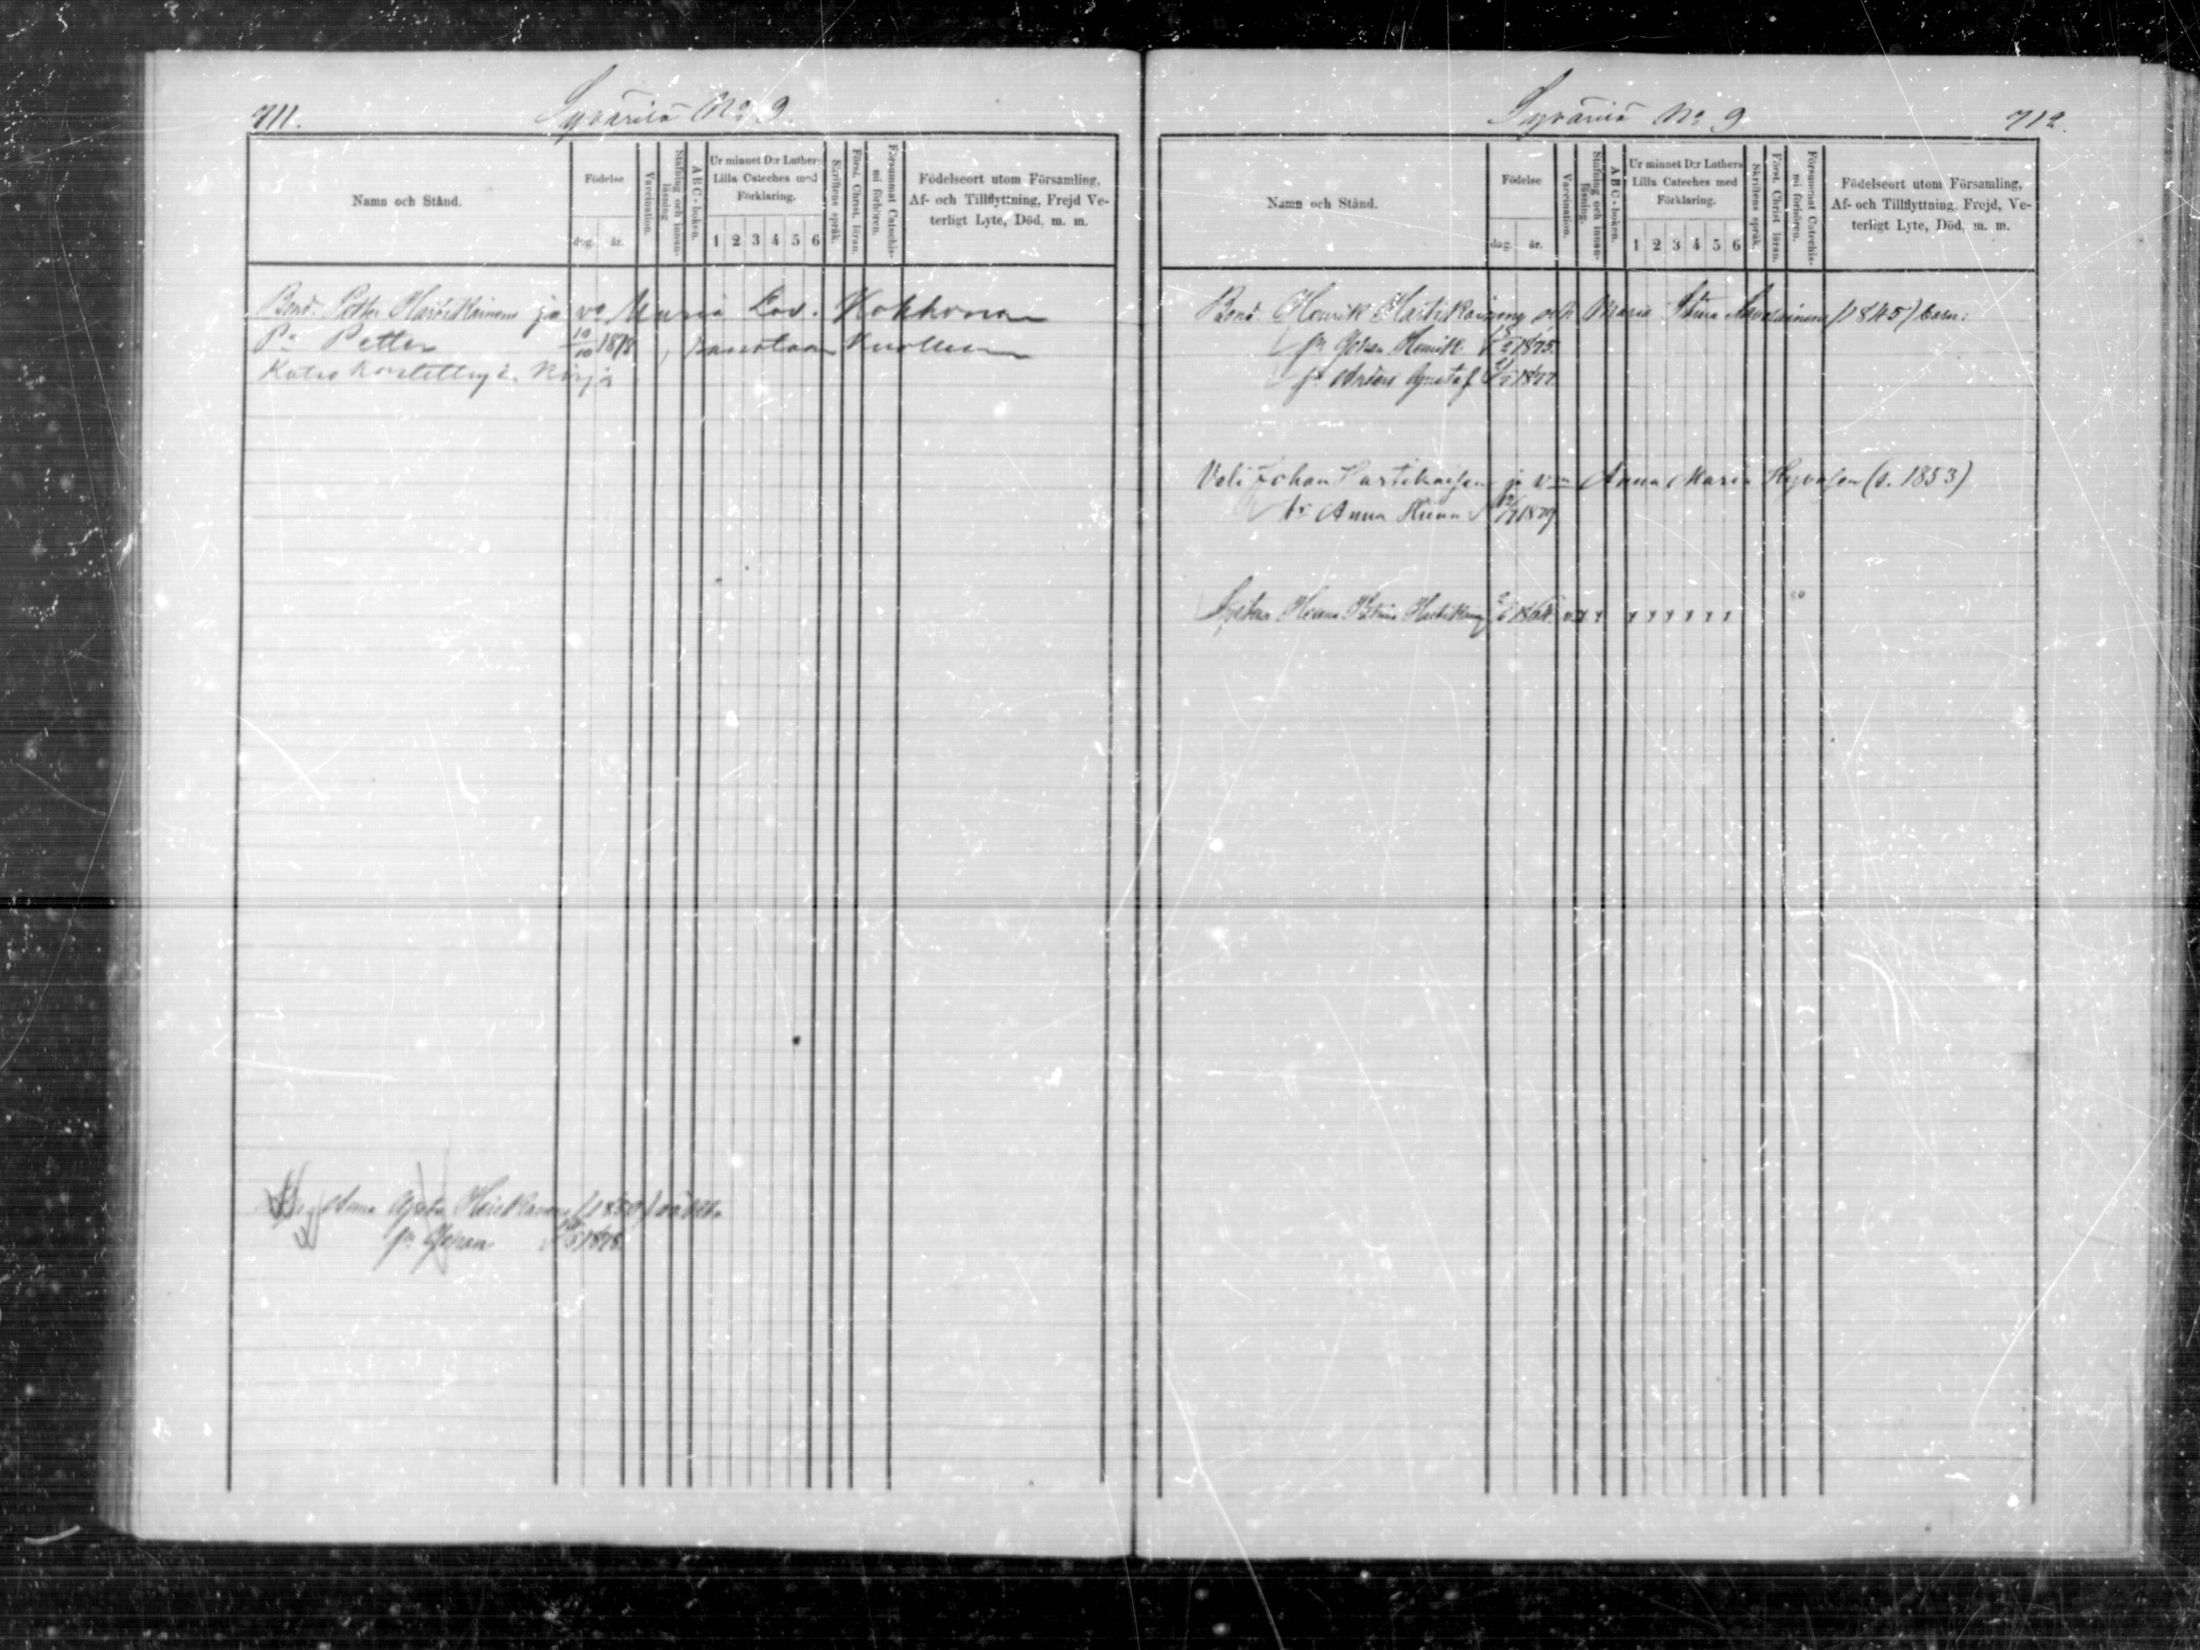 711.
Syväriä No 9.
Namn och Stånd.
Födelse
dag. år.
Vaccination.
Stafning och innan-läsning.
A B C-boken.
Ur minnet D:r Luthers
Lilla Cateches med
Förklaring.
1 2 3 4 5 6
Skriftens språk.
Först. Christ. läran.
Försummat Catechis-
mi förhören.
Födelseort utom Församling,
Af- och Tillflyttning, Frejd Ve-
terligt Lyte, Död. m. m.
Bond. Petter Hartikainen ja vo Maria Lov. Kokkonen
Pa Petter 10/10 1878,
Katso Konstetting kirja
Anna Heiskanen (1850)
pn Johan 1878.
Syväriä No 9
712.
Namn och Stånd.
Födelse
dag. år.
Vaccination.
Stafning och innan-
läsning.
A B C-boken.
Ur minnet D:r Luthers
Lilla Cateches med
Förklaring.
1 2 3 4 5 6
Skriftens språk.
Först. Christ läran.
Försummat Catechis-
mi förhören.
Födelseort utom Församling,
Af- och Tillflyttning, Frejd, Ve-
terligt Lyte, Död, m. m.
Bond Henrik Hartikainens och Maria Stina (1845) barn:
pn Johan Henrik 1875.
pn Anders Gustaf 1877.
Veli Johan Hartikaisen ja vn Anna Maria Hyvösen (s. 1853)
tr Anna Stiina 1879